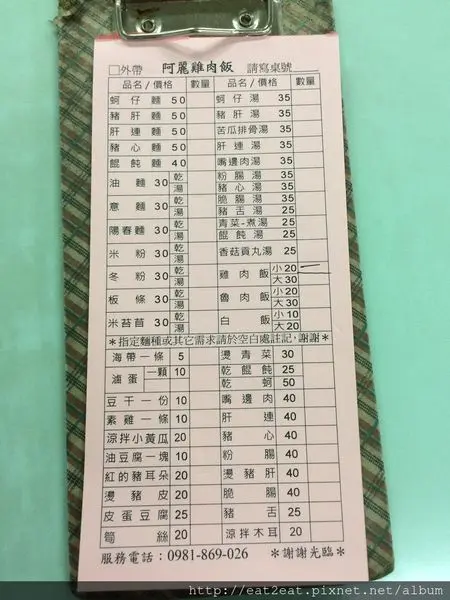 □外帶 阿麗雞肉飯 請寫桌號
品名/價格 數量 品名/價格 數量
蚵仔麵 50 蚵仔湯 35
豬肝麵 50 豬肝湯 35
肝連麵 50 苦瓜排骨湯 35
豬心麵 50 肝連湯 35
餛飩麵 40 嘴邊肉湯 35
油麵 30 乾 湯 粉腸湯 35
豬心湯 35
意麵 30 乾 湯 脆腸湯 35
豬舌湯 25
陽春麵 30 乾 湯 青菜-煮湯 25
餛飩湯 25
米粉 30 乾 湯 香菇貢丸湯 25
冬粉 30 乾 湯 雞肉飯 小20
大30
板條 30 乾 湯 魯肉飯 小20
大30
米苔苜 30 乾 湯 白飯 小10
大20
*指定麵種或其它需求請於空白處註記,謝謝*
海帶一條 5 燙青菜 30
滷蛋 一顆 10 乾餛飩 25
乾蚵 50
豆干一份 10 嘴邊肉 40
素雞一條 10 肝連 40
涼拌小黃瓜 20 豬心 40
油豆腐一塊 10 粉腸 40
紅的豬耳朵 20 燙豬肝 40
燙豬皮 20 脆腸 40
皮蛋豆腐 25 豬舌 25
筍絲 20 涼拌木耳 20
服務電話:0981-869-026 *謝謝光臨*
http://eat2eat.pixnet.net/album